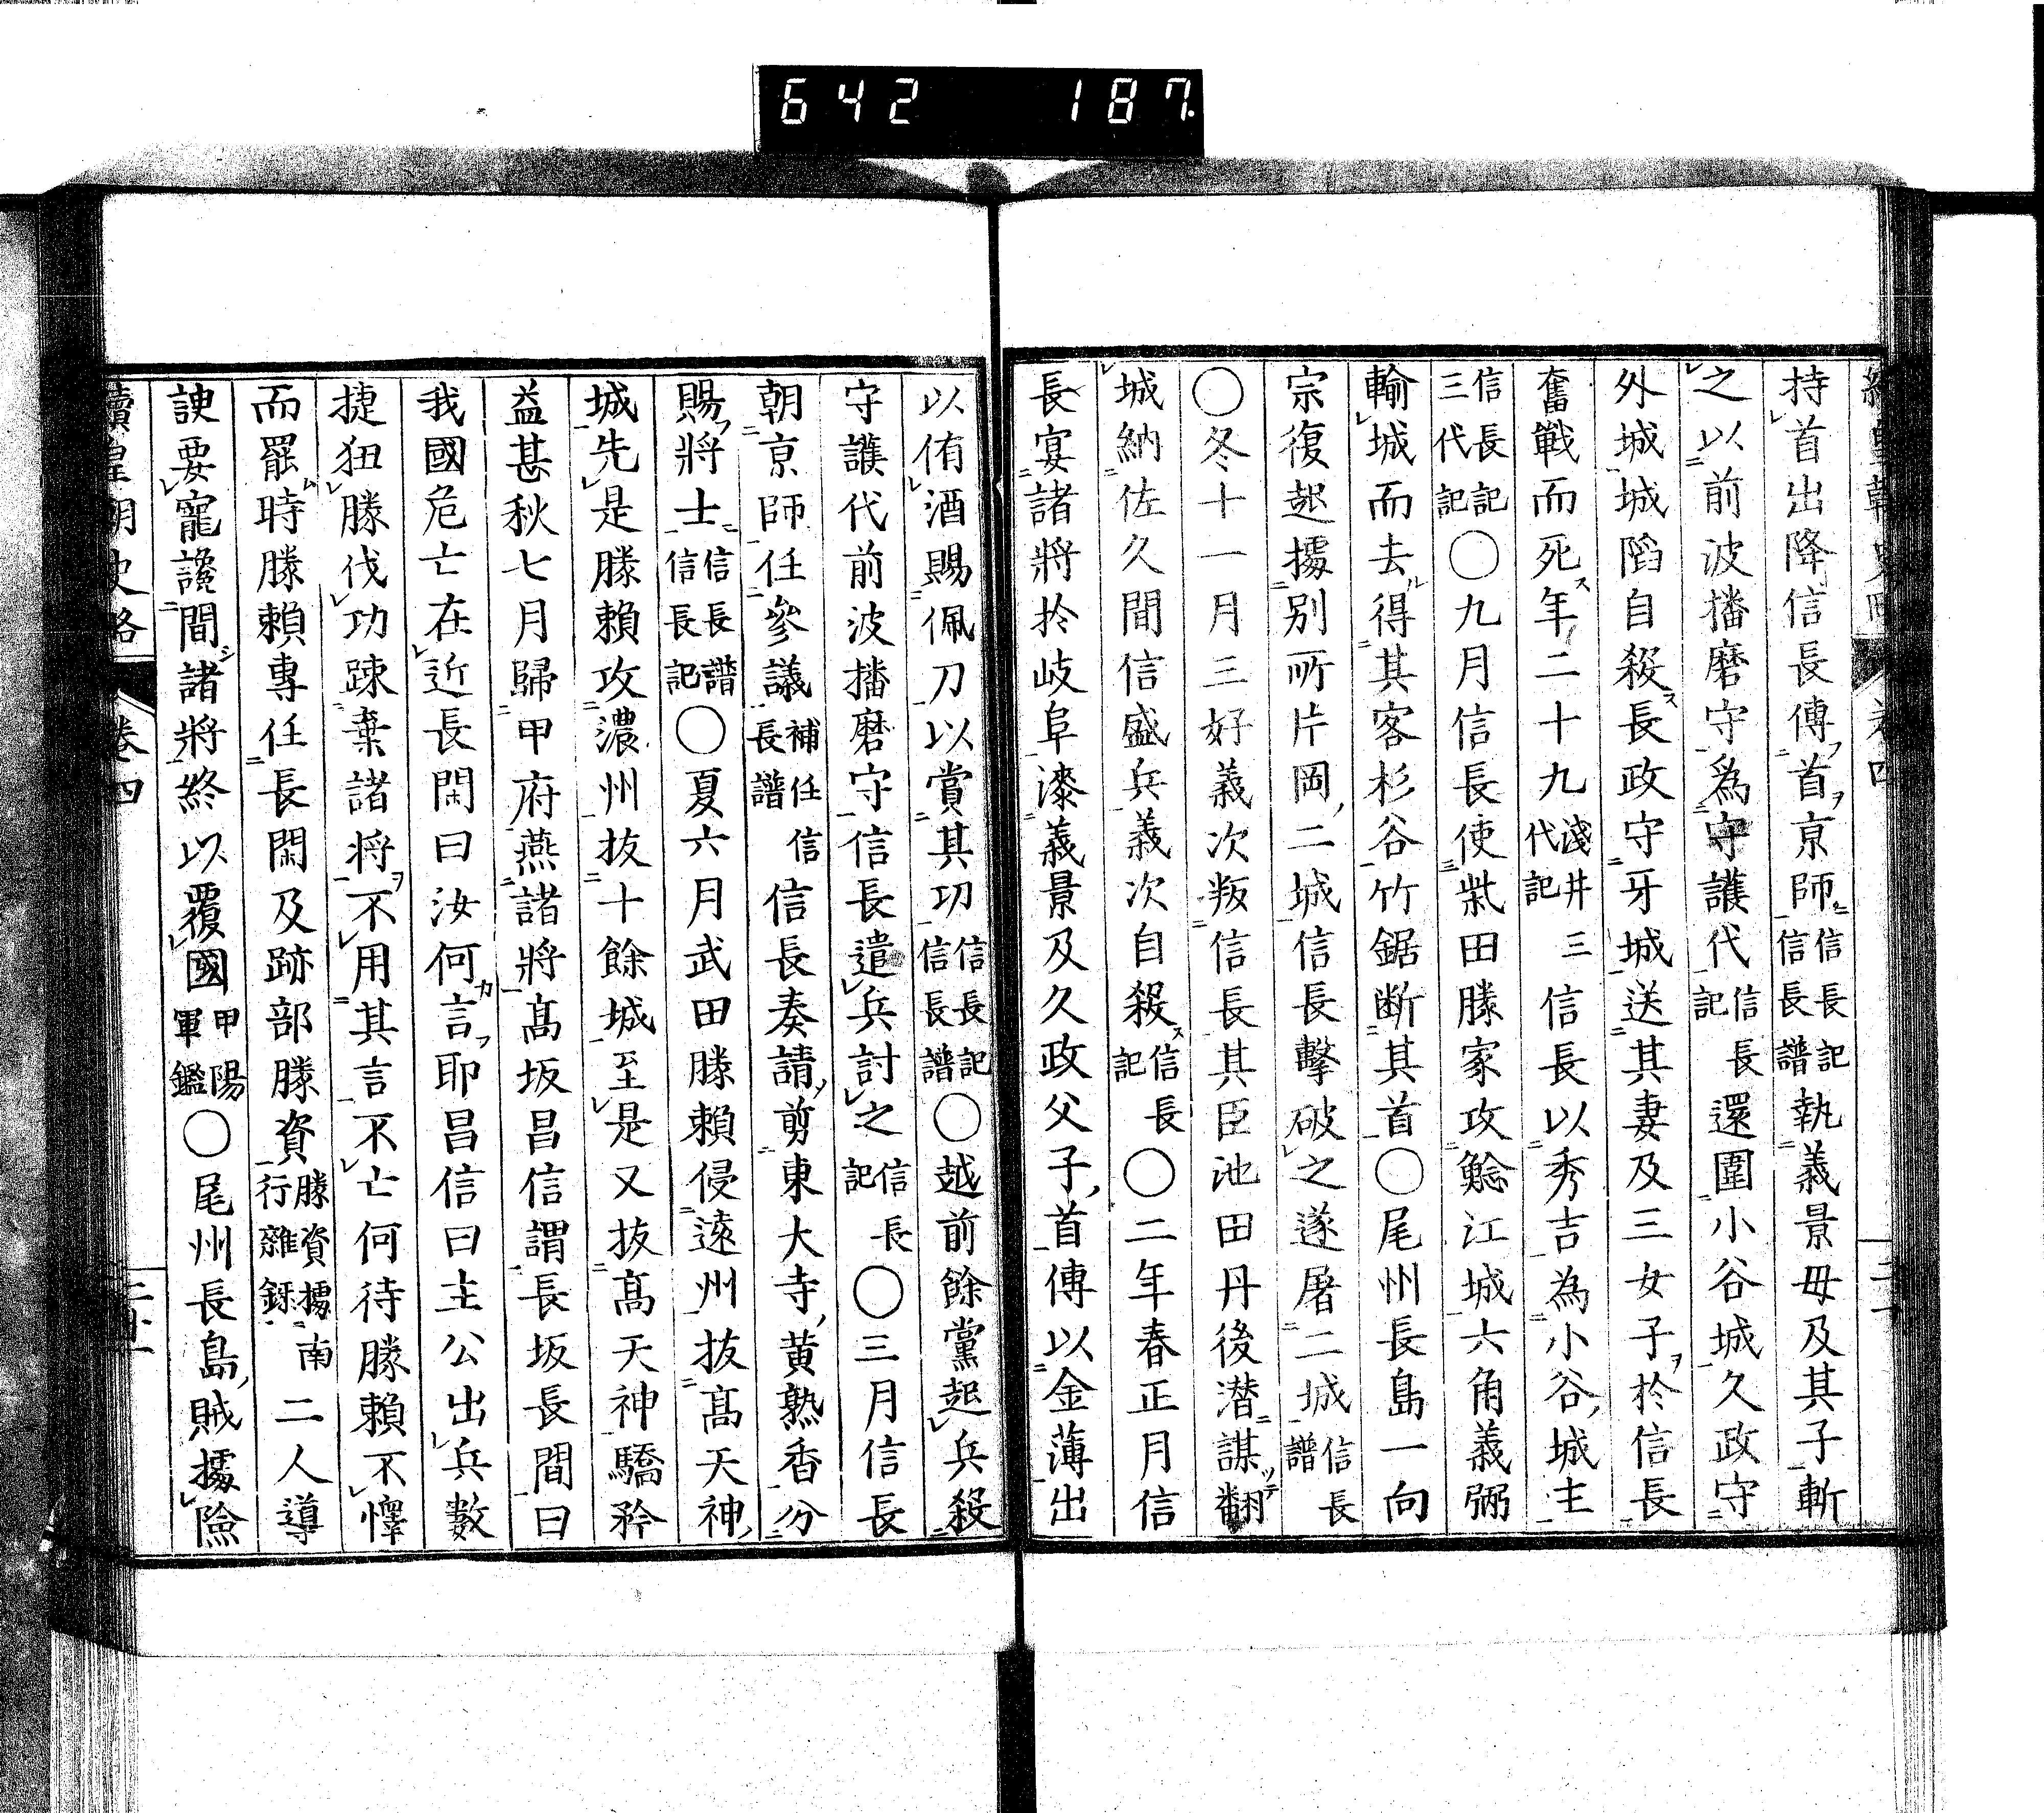 642 187
持首出降信長傳首京師信長記信長譜執義景母及其子斬
之以前波播磨守爲守護代信長記還圍小谷城久政守
外城城陷自殺長政守牙城送其妻及三女子於信長
奮戰而死年二十九淺井三代記信長以秀吉為小谷城主
信長記三代記〇九月信長使柴田勝家攻鯰江城六角義弼
輸城而去得其客杉谷竹鋸断其首〇尾州長島一向
宗復起據別所片岡二城信長擊破之遂屠二城信長譜
〇冬十一月三好義次叛信長其臣池田丹後潜謀翻
城納佐久間信盛兵義次自殺信長記〇二年春正月信
長宴諸將於岐阜漆義景及久政父子首傅以金薄出
以侑酒賜佩刀以賞其功信長記信長譜〇越前餘黨起兵殺
守護代前波播磨守信長遣兵討之信長記〇三月信長
朝京師任參議補任信長譜信長奏請剪東大寺黄熟香分
賜將士信長譜信長記〇夏六月武田勝賴侵遠州拔高天神
城先是勝賴攻濃州拔十餘城至是又拔高天神驕矜
益甚秋七月歸甲府燕諸將高坂昌信謂長坂長間曰
我國危亡在近長閑曰汝何言耶昌信曰主公出兵數
捷狃勝伐功踈棄諸将不用其言不亡何待勝賴不懌
而罷時勝賴專任長閑及跡部勝資勝資據南行雜録二人導
諛要寵讒間諸將終以覆國甲陽軍鑑〇尾州長島賊據險
續皇朝史略 卷四